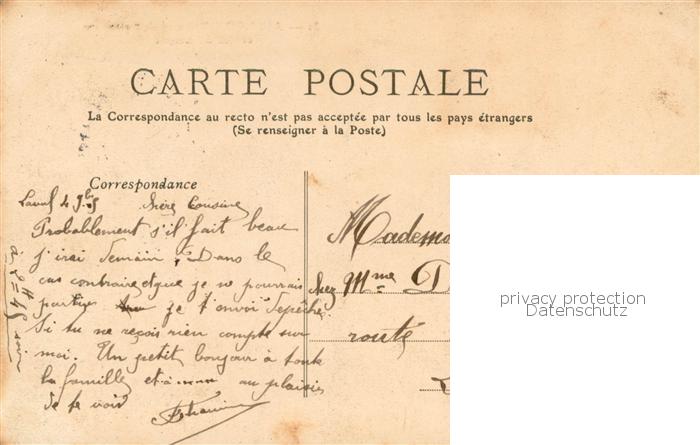 CARTE POSTALE
La Correspondance au recto n'est pas acceptée par tous les pays étrangers
(Se renseigner à la Poste)
Correspondance
Laval 4
Chère Cousine
Probablement s'il fait beau
j'irai demain. Dans le
cas contraire et que je ne pourrais
partir je t'envoi dépêche
Si tu ne reçois rien compte sur
moi. Un petit bonjour à toute
la famille et à au plaisir
de te voir
Mademo
chez Mme D
route
privacy protection
Datenschutz